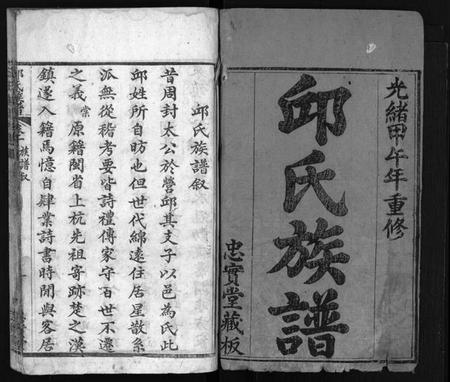 光緒甲午年重修
邱氏族譜
忠實堂藏板
邱氏族譜叙
昔周封太公於營邱其支子以邑為氏此
邱姓所自昉也但世代綿遠住居星散系
派無從稽考要皆詩禮傳家守百世不遷
之義棠原籍閩省上杭先祖寄跡楚之漢
鎮遂入籍焉憶自肄業詩書時聞與客居
卷一 族譜叙